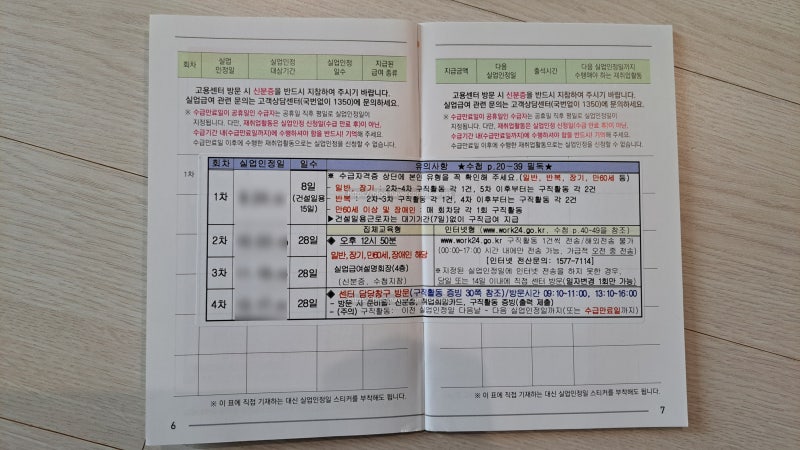 회차 실업인정일 실업인정 대상기간 실업인정 일수 지급된 급여 종류
고용센터 방문 시 신분증을 반드시 지참하여 주시기 바랍니다.
실업급여 관련 문의는 고객상담센터(국번없이 1350)에 문의하세요.
※ 수급만료일이 공휴일인 수급자는 공휴일 직후 평일로 실업인정일이
지정됩니다. 다만, 재취업활동은 실업인정 신청일(수급 만료 후)이 아닌,
수급기간 내(수급만료일까지)에 수행하셔야 함을 반드시 기억해 주세요.
수급만료일 이후에 수행한 재취업활동으로는 실업인정을 신청할 수 없습니다.
지급금액 다음 실업인정일 출석시간 다음 실업인정일까지 수행해야 하는 재취업활동
고용센터 방문 시 신분증을 반드시 지참하여 주시기 바랍니다.
실업급여 관련 문의는 고객상담센터(국번없이 1350)에 문의하세요.
※ 수급만료일이 공휴일인 수급자는 공휴일 직후 평일로 실업인정일이
지정됩니다. 다만, 재취업활동은 실업인정 신청일(수급 만료 후)이 아닌,
수급기간 내(수급만료일까지)에 수행하셔야 함을 반드시 기억해 주세요.
수급만료일 이후에 수행한 재취업활동으로는 실업인정을 신청할 수 없습니다.
1차
회차 실업인정일 일수 유의사항 ★수첩 p.20~39 필독★
1차 8일
(건설일용 15일)
※ 수급자격증 상단에 본인 유형을 꼭 확인해 주세요.(일반, 반복, 장기, 만60세 등)
- 일반, 장기 : 2차~4차 구직활동 각 1건, 5차 이후부터는 구직활동 각 2건
- 반복 : 2차~3차 구직활동 각 1건, 4차 이후부터는 구직활동 각 2건
- 만60세 이상 및 장애인 : 매 회차당 각 1회 구직활동
▶건설일용근로자는 대기기간(7일)없이 구직급여 지급
집체교육형 인터넷형 (www.work24.go.kr, 수첩 p.40~49을 참조)
2차 28일
3차 28일
◆ 오후 12시 50분
일반,장기,만60세,장애인 해당
실업급여설명회장(4층)
(신분증, 수첩지참)
◆ www.work24.go.kr 구직활동 1건씩 전송/해외전송 불가
(00:00~17:00 시간 내에만 전송 가능, 가급적 오전 중 전송)
[인터넷 전산문의: 1577-7114]
※지정된 실업인정일에 인터넷 전송을 하지 못한 경우,
당일 또는 14일 이내에 직접 센터 방문(일자변경 1회만 가능)
4차 28일
◆ 센터 담당창구 방문(구직활동 증빙 30쪽 참조)/방문시간 09:10~11:00, 13:10~16:00
- 방문 시 준비물: 신분증, 취업희망카드, 구직활동 증빙(출력 제출)
- (주의) 구직활동: 이전 실업인정일 다음날 ~ 다음 실업인정일까지(또는 수급만료일까지)
※ 이 표에 직접 기재하는 대신 실업인정일 스티커를 부착해도 됩니다.
※ 이 표에 직접 기재하는 대신 실업인정일 스티커를 부착해도 됩니다.
6
7